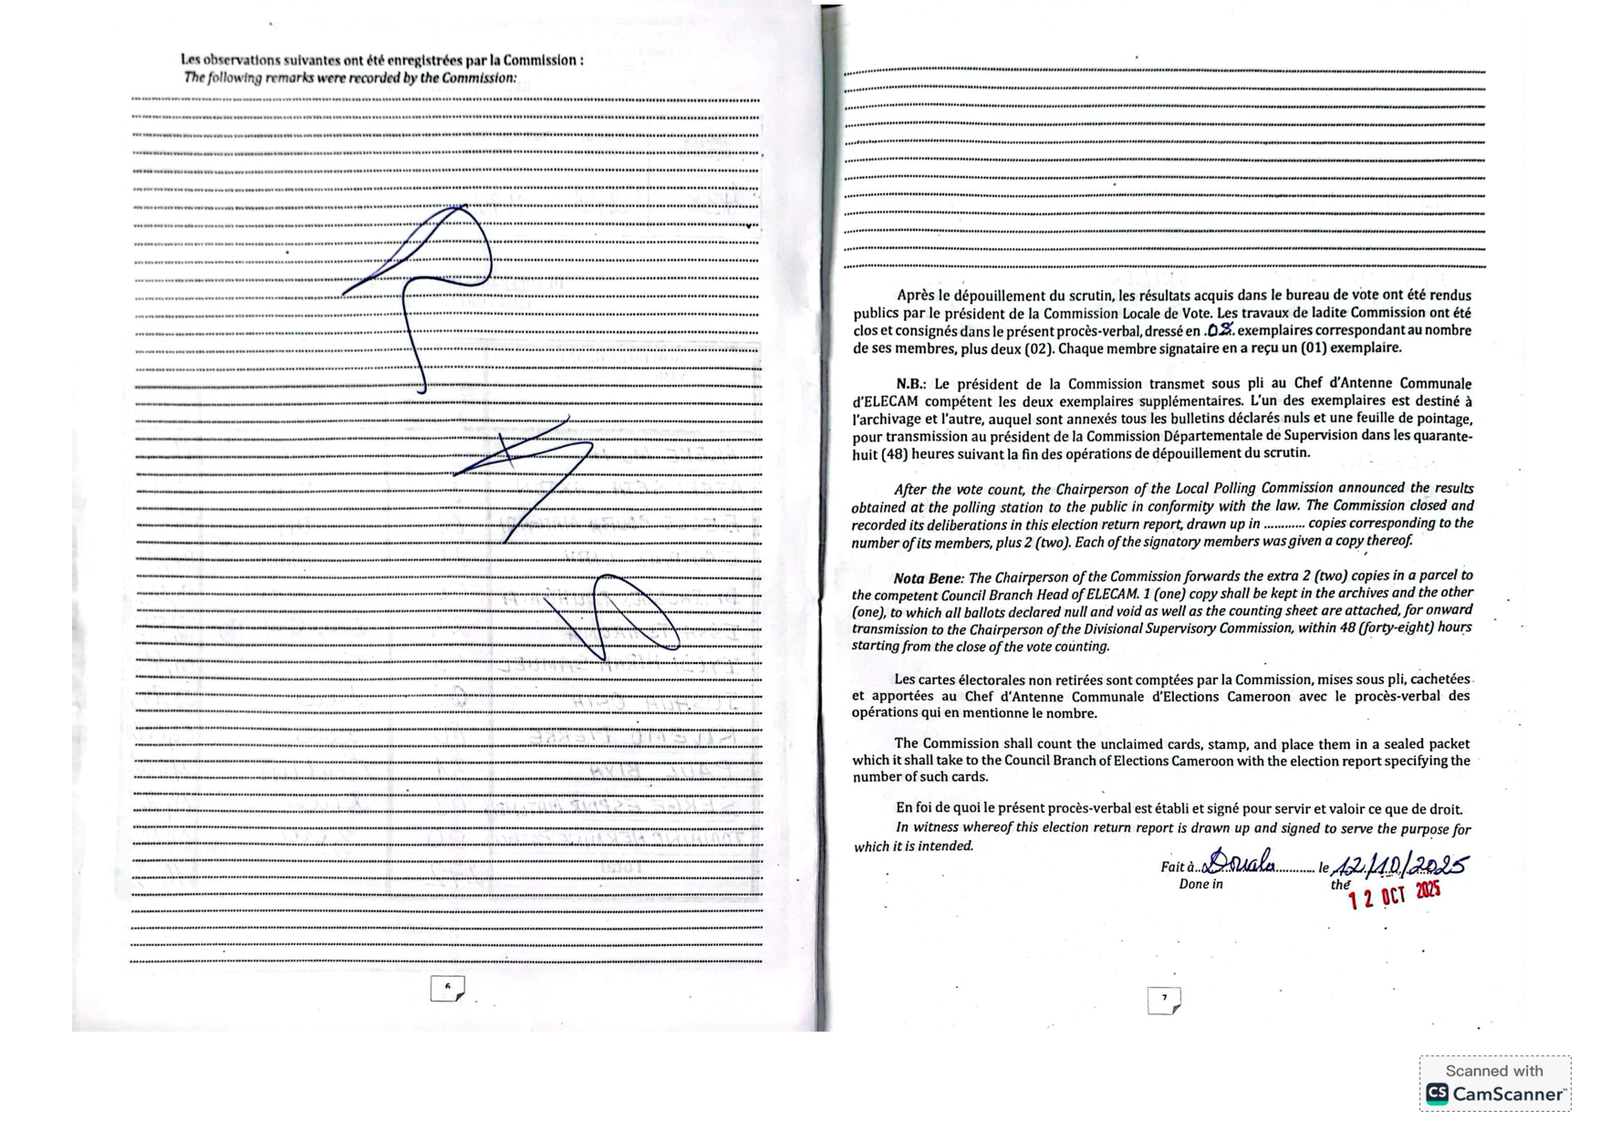 Les observations suivantes ont été enregistrées par la Commission :
The following remarks were recorded by the Commission:
6
Après le dépouillement du scrutin, les résultats acquis dans le bureau de vote ont été rendus
publics par le président de la Commission Locale de Vote. Les travaux de ladite Commission ont été
clos et consignés dans le présent procès-verbal, dressé en .08. exemplaires correspondant au nombre
de ses membres, plus deux (02). Chaque membre signataire en a reçu un (01) exemplaire.
N.B.: Le président de la Commission transmet sous pli au Chef d'Antenne Communale
d'ELECAM compétent les deux exemplaires supplémentaires. L'un des exemplaires est destiné à
l'archivage et l'autre, auquel sont annexés tous les bulletins déclarés nuls et une feuille de pointage,
pour transmission au président de la Commission Départementale de Supervision dans les quarante-
huit (48) heures suivant la fin des opérations de dépouillement du scrutin.
After the vote count, the Chairperson of the Local Polling Commission announced the results
obtained at the polling station to the public in conformity with the law. The Commission closed and
recorded its deliberations in this election return report, drawn up in ........... copies corresponding to the
number of its members, plus 2 (two). Each of the signatory members was given a copy thereof.
Nota Bene: The Chairperson of the Commission forwards the extra 2 (two) copies in a parcel to
the competent Council Branch Head of ELECAM. 1 (one) copy shall be kept in the archives and the other
(one), to which all ballots declared null and void as well as the counting sheet are attached, for onward
transmission to the Chairperson of the Divisional Supervisory Commission, within 48 (forty-eight) hours
starting from the close of the vote counting.
Les cartes électorales non retirées sont comptées par la Commission, mises sous pli, cachetées
et apportées au Chef d'Antenne Communale d'Elections Cameroon avec le procès-verbal des
opérations qui en mentionne le nombre.
The Commission shall count the unclaimed cards, stamp, and place them in a sealed packet
which it shall take to the Council Branch of Elections Cameroon with the election report specifying the
number of such cards.
En foi de quoi le présent procès-verbal est établi et signé pour servir et valoir ce que de droit.
In witness whereof this election return report is drawn up and signed to serve the purpose for
which it is intended.
Fait à..Douala........... le 12/10/2025
Done in the
12 OCT 2025
7
Scanned with
CS CamScanner